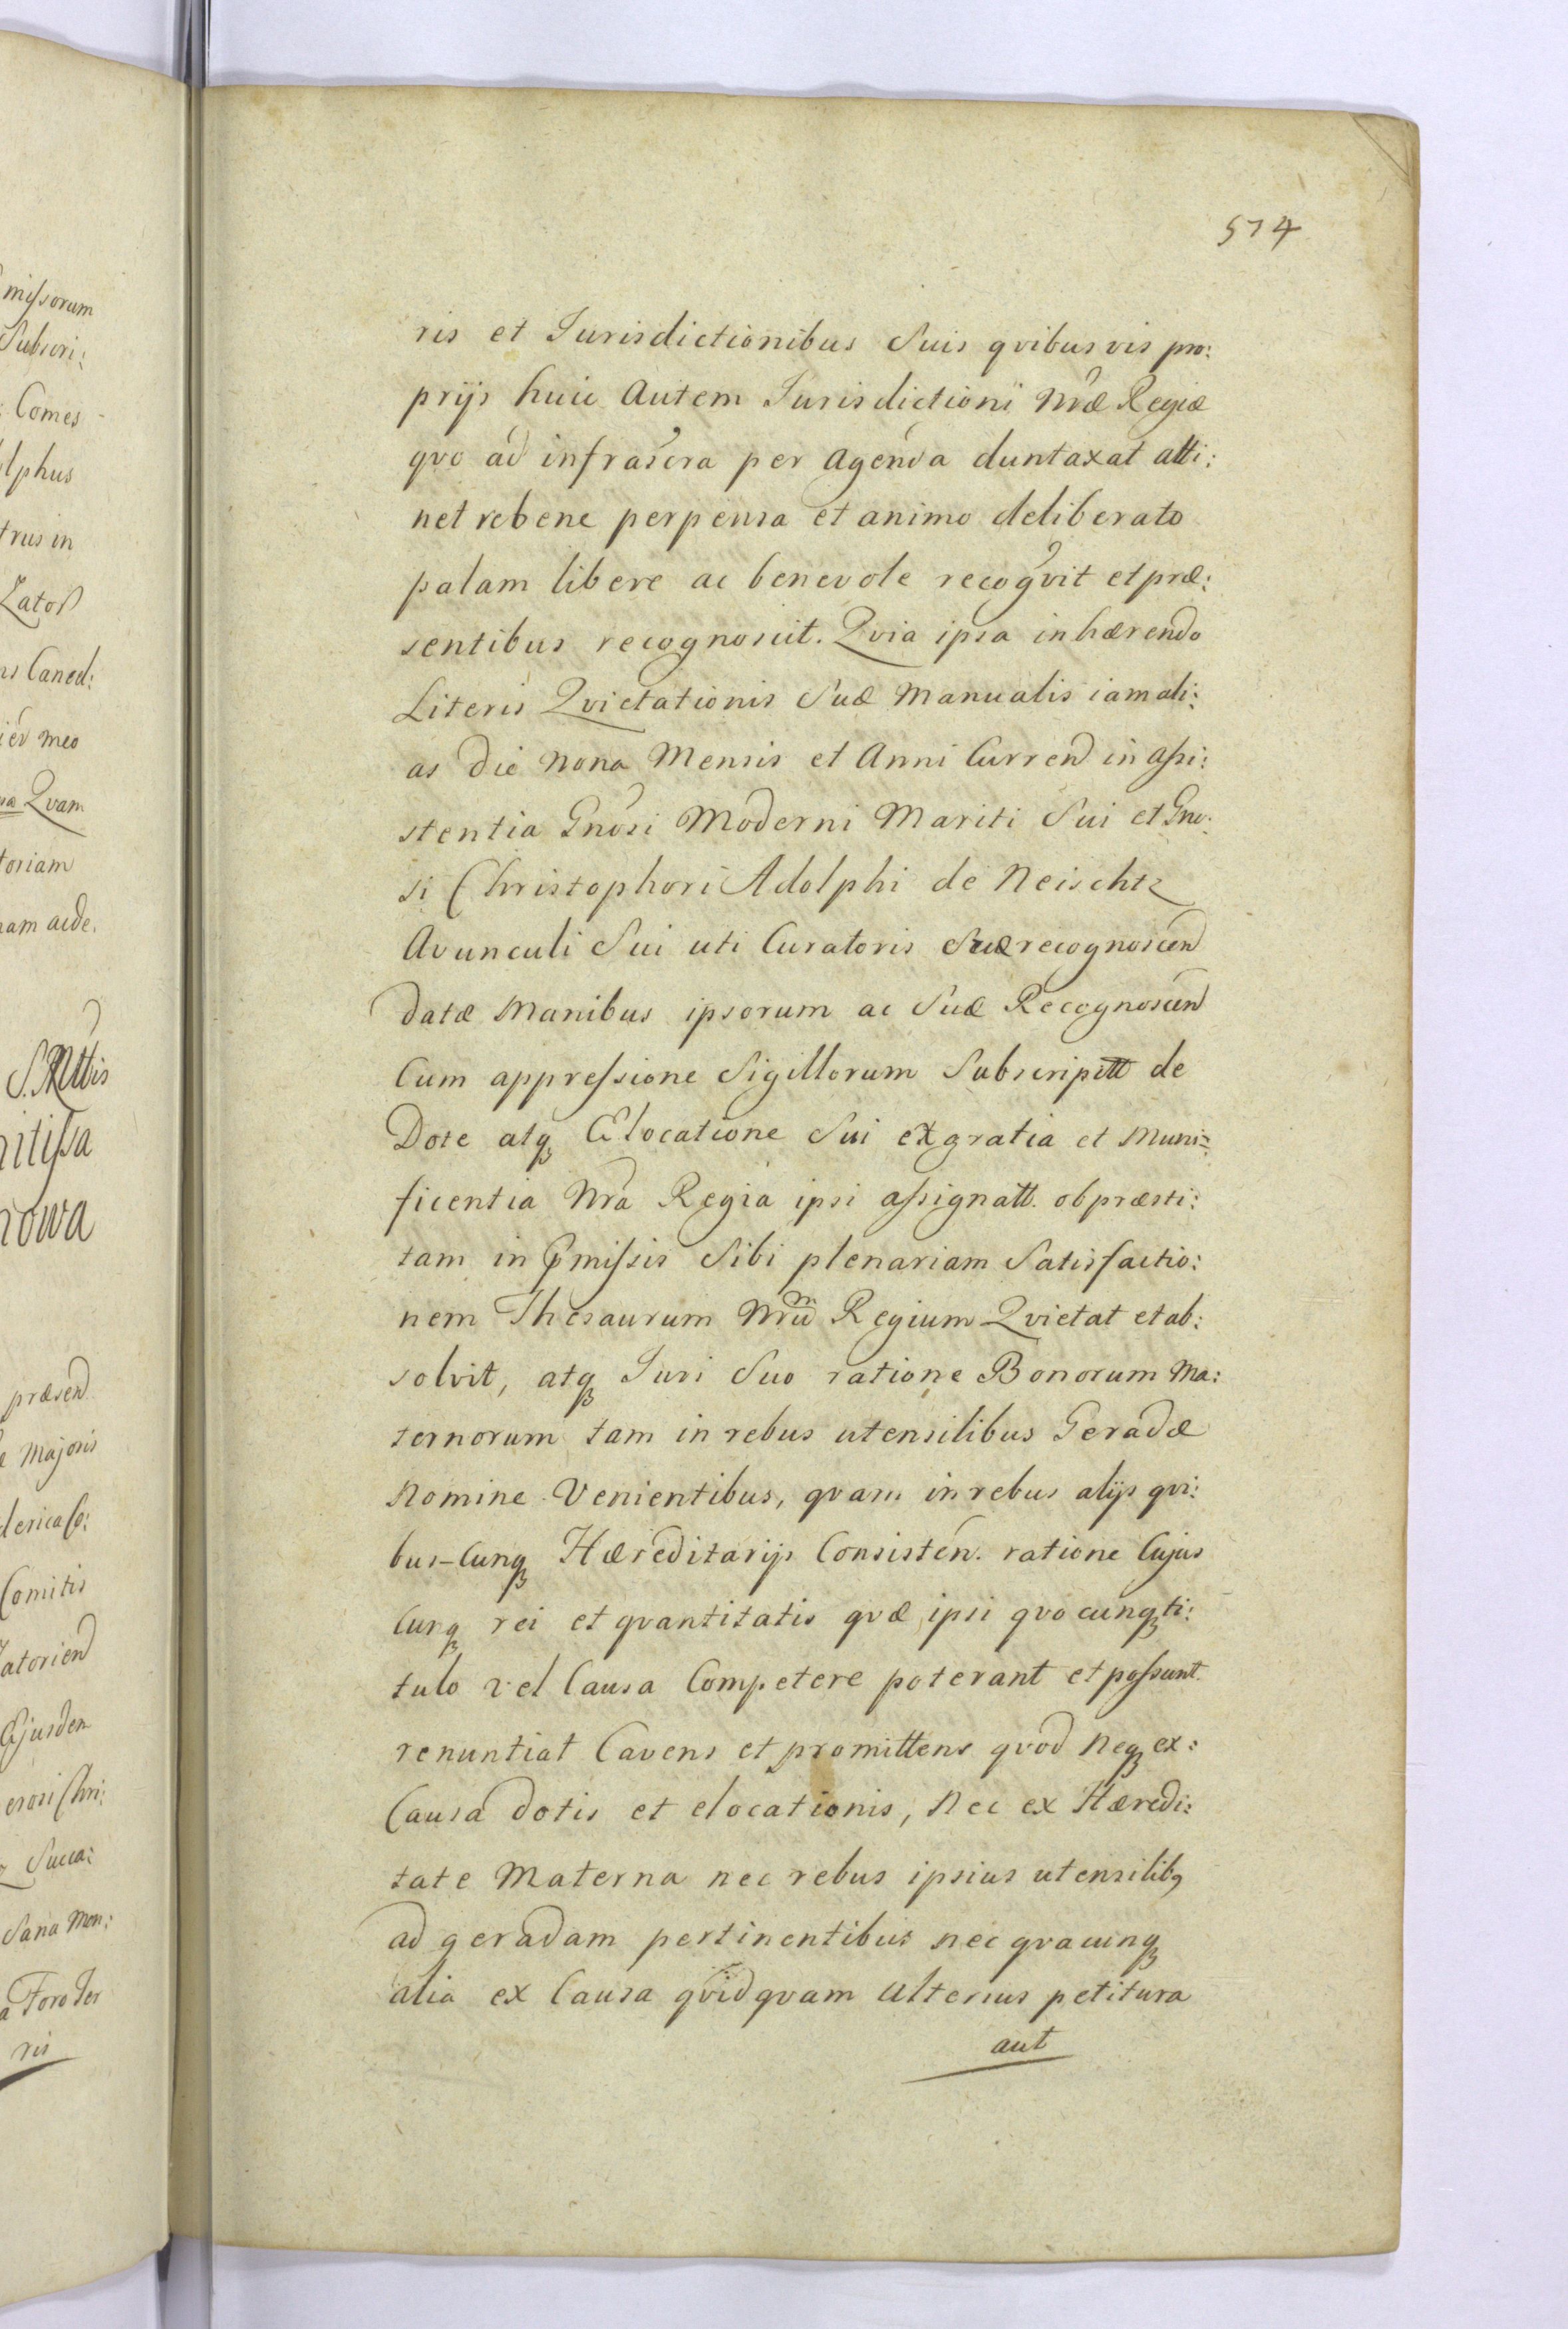 missorum
Subscri:
Comes
lphus
trus in
Zator
ns Caned:
meo
Qvam
toriam
nam acde.
nitissa
nowa
præsend
Majoris
Comitis
atoriend
Ejusdem
erosi Chri:
Succa:
Sana Men:
a Foro Ter
ris
574
ris et Jurisdictionibus Suis qvibusvis pro:
prijs huic Autem Jurisdictioni Nræ Regiæ
qvo ad infrascra per Agenda duntaxat atti:
net rebene perpensa et animo deliberato
palam libere ac benevole recogvit et præ:
sentibus recognoscit. Qvia ipsa inhærendo
Literis Qvietationis Suæ Manualis iam ali:
as die nona Mensis et Anni Curren in assi:
stentia Gnosi Moderni Mariti Sui et Gno:
si Christophori Adolphi de Neischtz
Avunculi Sui uti Curatoris Suæ recognoscen
datæ Manibus ipsorum ac Suæ Recognoscen
Cum appressione Sigillorum Subscriptt de
Dote atq Elocatione Sui ex gratia et Muni:
ficentia Nra Regia ipsi assignatt. ob præsti:
tam in Pmissis Sibi plenariam Satisfactio:
nem Thesaurum Nrum Regium Qvietat et ab:
solvit, atq Juri Suo ratione Bonorum Ma:
ternorum tam in rebus utensilibus Geradæ
Nomine Venientibus, qvam in rebus alijs qvi:
bus-Cunq Hæreditarijs Consisten. ratione Cujus
Cunq rei et qvantitatis qvæ ipsi qvocunq ti:
tulo vel Causa Competere poterant et possunt.
renuntiat Cavens et promittens qvod Neq ex:
Causa dotis et elocationis, Nec ex Hæredi:
tate Materna nec rebus ipsius utensilibg
ad geradam pertinentibus nec qvacunq
alia ex Causa qvidqvam Ulterius petitura
aut